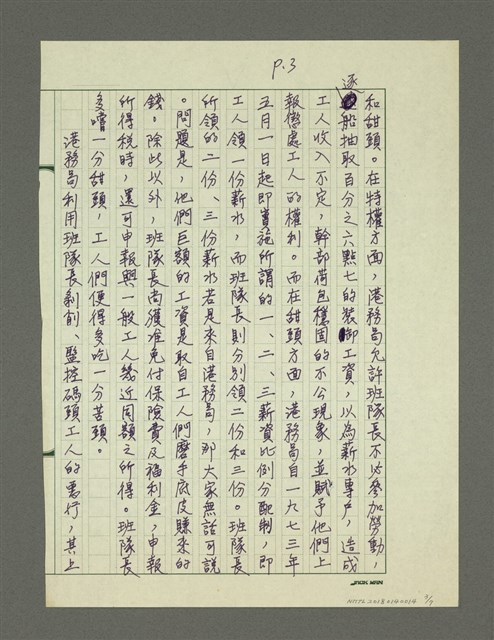 P.3
和甜頭。在特權方面，港務局允許班隊長不必參加勞動，
逐船抽取百分之六點七的裝卸工資，以為薪水專戶，造成
工人收入不定，幹部荷包穩固的不公現象，並賦予他們上
報懲處工人的權利。而在甜頭方面，港務局自一九七三年
五月一日起即實施所謂的一、二、三薪資比例分配制，即
工人領一份薪水，而班隊長則分別領二份和三份。班隊長
所領的二份、三份薪水若是來自港務局，那大家無話可說
。問題是，他們巨額的工資是取自工人們磨手底皮賺來的
錢。除此以外，班隊長尚獲准免付保險費及福利金，申報
所得稅時，還可申報與一般工人幾近同額之所得。班隊長
多嚐一分甜頭，工人們便得多吃一分苦頭。
港務局利用班隊長剝削、監控碼頭工人的惡行，其上
NMTL20180140014 3/7